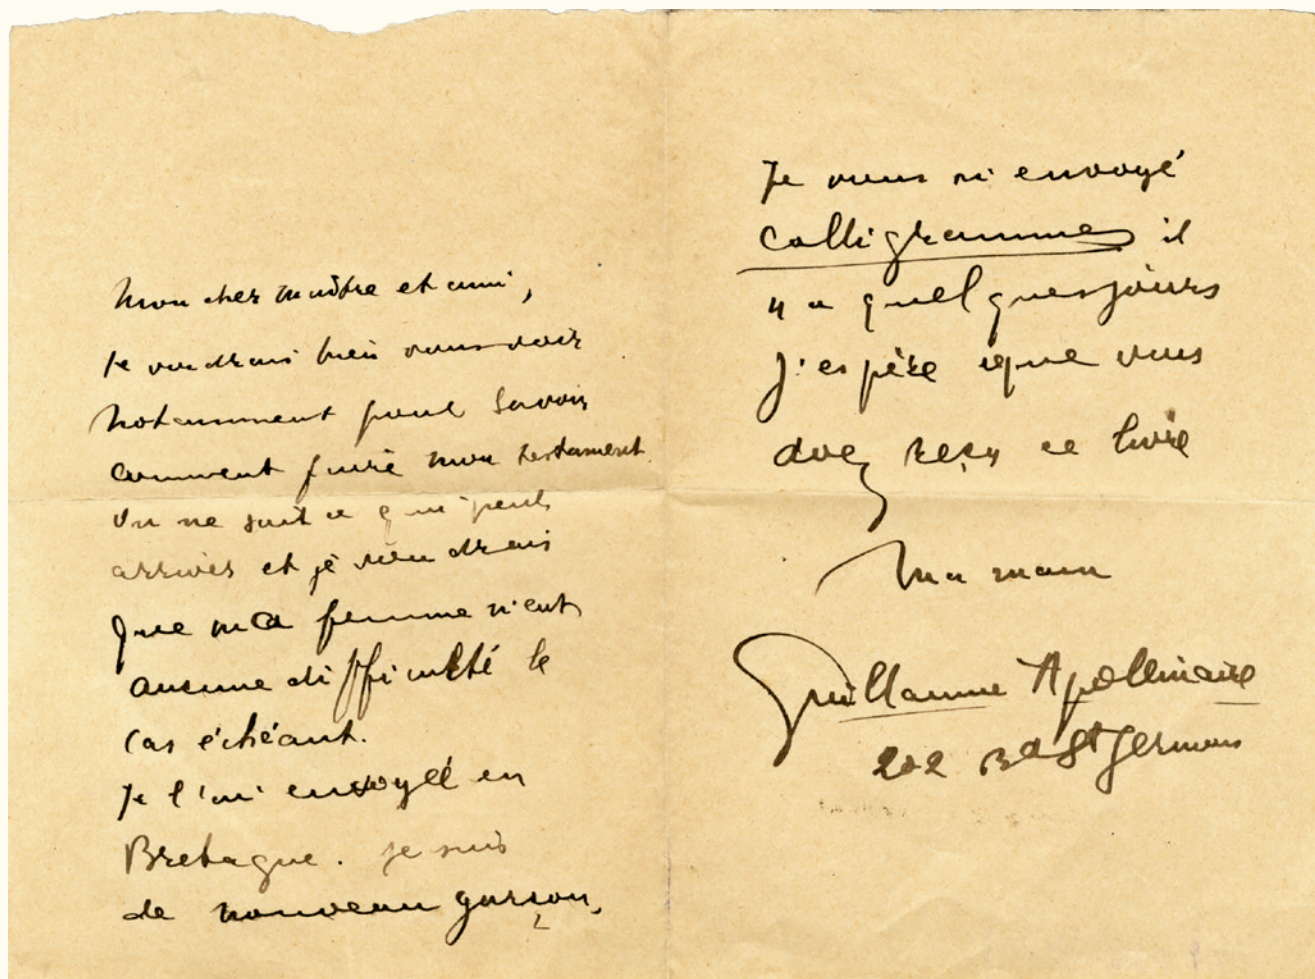 Mon cher maître et ami,
Je voudrais bien vous voir
notamment pour savoir
comment faire mon testament.
On ne sait ce qui peut
arriver et je voudrais
que ma femme n'eut
aucune difficulté le
cas échéant.
Je l'ai envoyée en
Bretagne. je suis
de nouveau garçon.
Je vous ai envoyé
Calligrammes il
y a quelques jours
J'espère que vous
avez reçu ce livre
Ma main
Guillaume Apollinaire
202 Bd St Germain